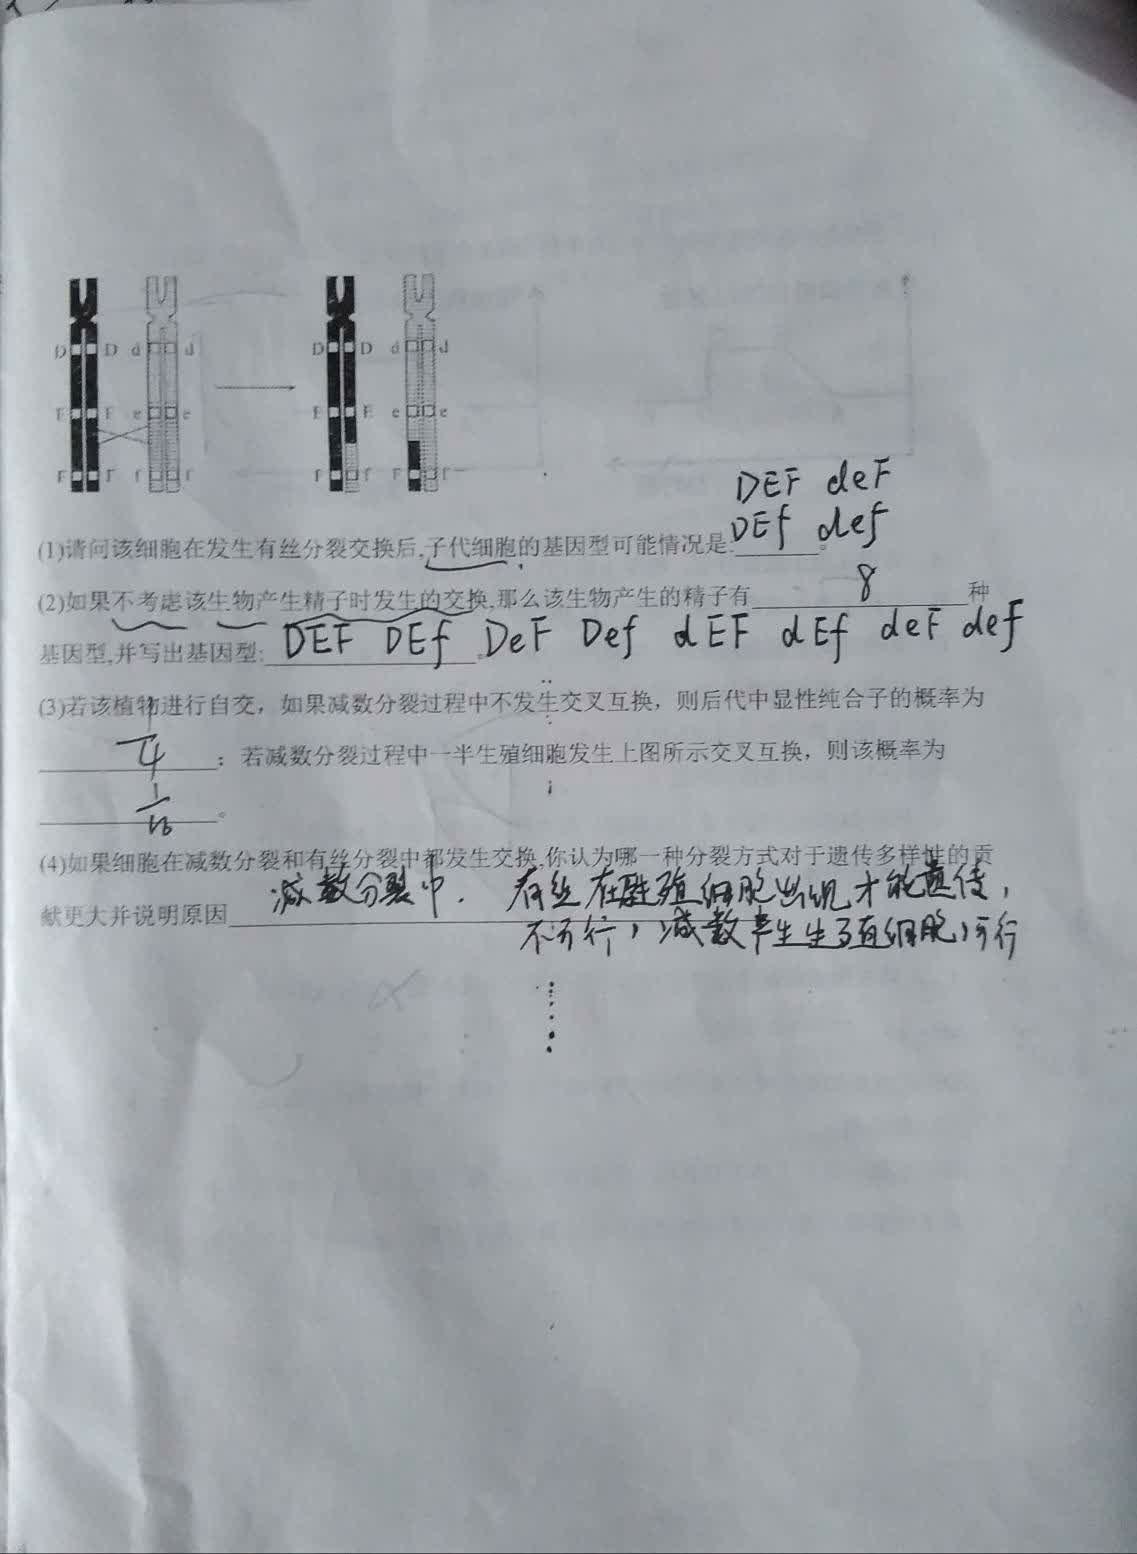 D D d d D D d d
E E e e E E e e
F F f f F f F f
DEF deF
DEf def
(1)请问该细胞在发生有丝分裂交换后,子代细胞的基因型可能情况是: 。
(2)如果不考虑该生物产生精子时发生的交换,那么该生物产生的精子有 8 种
基因型,并写出基因型: DEF DEf DeF Def dEF dEf deF def
(3)若该植物进行自交，如果减数分裂过程中不发生交叉互换，则后代中显性纯合子的概率为
1/4 ；若减数分裂过程中一半生殖细胞发生上图所示交叉互换，则该概率为
1/16 。
(4)如果细胞在减数分裂和有丝分裂中都发生交换,你认为哪一种分裂方式对于遗传多样性的贡
献更大并说明原因 减数分裂中. 有丝在生殖细胞出现才能遗传，
不可行，减数产生生殖细胞,可行